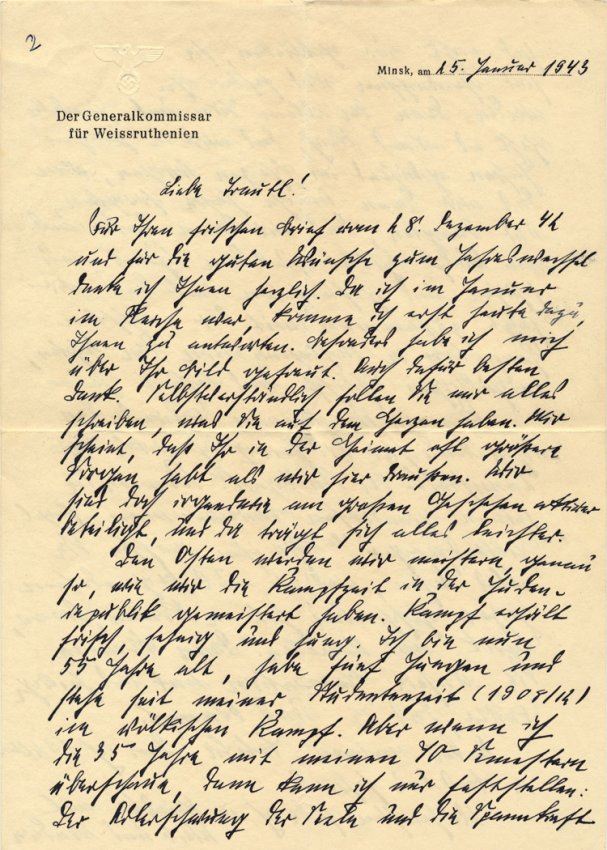 2
Minsk, am 25. Januar 1943
Der Generalkommissar
für Weissruthenien
Liebe Trautl!
Für Ihren frischen Brief vom 28. Dezember 42
und für die guten Wünsche zum Jahreswechsel
danke ich Ihnen herzlich. Da ich im Januar
im Reiche war, komme ich erst heute dazu,
Ihnen zu antworten. Besonders habe ich mich
über Ihr Bild gefreut. Auch dafür besten
Dank. Selbstverständlich sollen Sie mir alles
schreiben, was Sie auf dem Herzen haben. Mir
scheint, daß Ihr in der Heimat oft größere
Sorgen habt als wir hier draußen. Wir
sind doch irgendwie am großen Geschehen aktiver
beteiligt, und da trägt sich alles leichter.
Den Osten werden wir meistern, genau
so, wie wir die Kampfzeit in der Juden-
republik gemeistert haben. Kampf erhält
frisch, sehnig und jung. Ich bin nun
55 Jahre alt, habe fünf Jungen und
stehe seit meiner Studentenzeit (1908/12)
im völkischen Kampf. Aber wenn ich
die 35 Jahre mit meinen 70 Semestern
überschaue, dann kann ich nur feststellen:
Der Adlerschwung der Seele und die Spannkraft